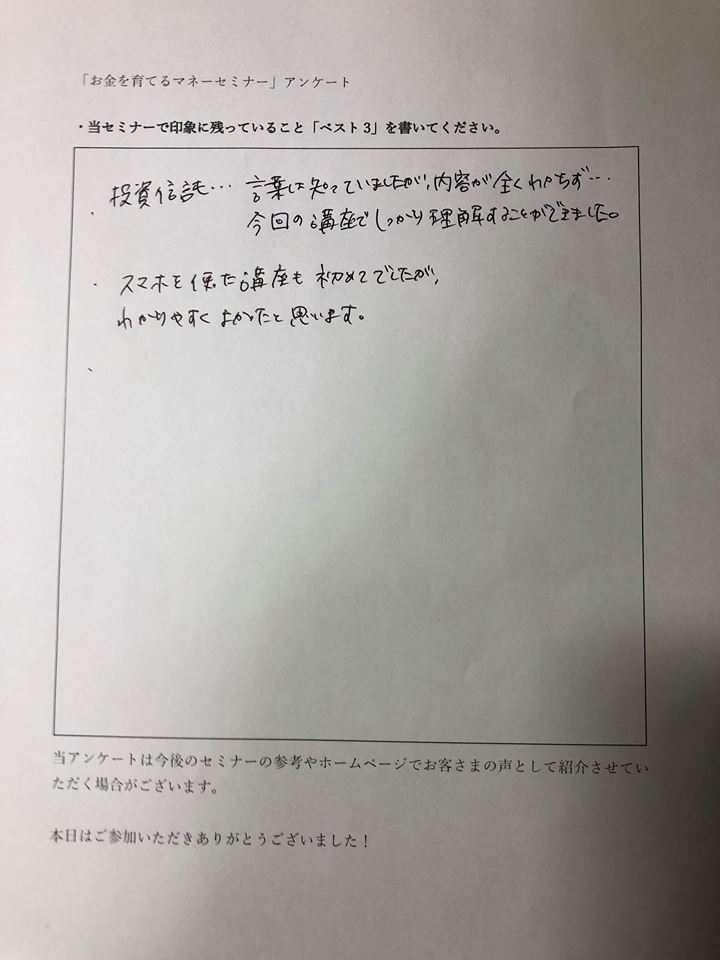 「お金を育てるマネーセミナー」アンケート
・当セミナーで印象に残っていること「ベスト3」を書いてください。
・投資信託… 言葉は知っていましたが、内容が全くわからず…
今回の講座でしっかり理解することができました。
・スマホを使た講座も初めてでしたが、
わかりやすくよかったと思います。
、
当アンケートは今後のセミナーの参考やホームページでお客さまの声として紹介させてい
ただく場合がございます。
本日はご参加いただきありがとうございました！